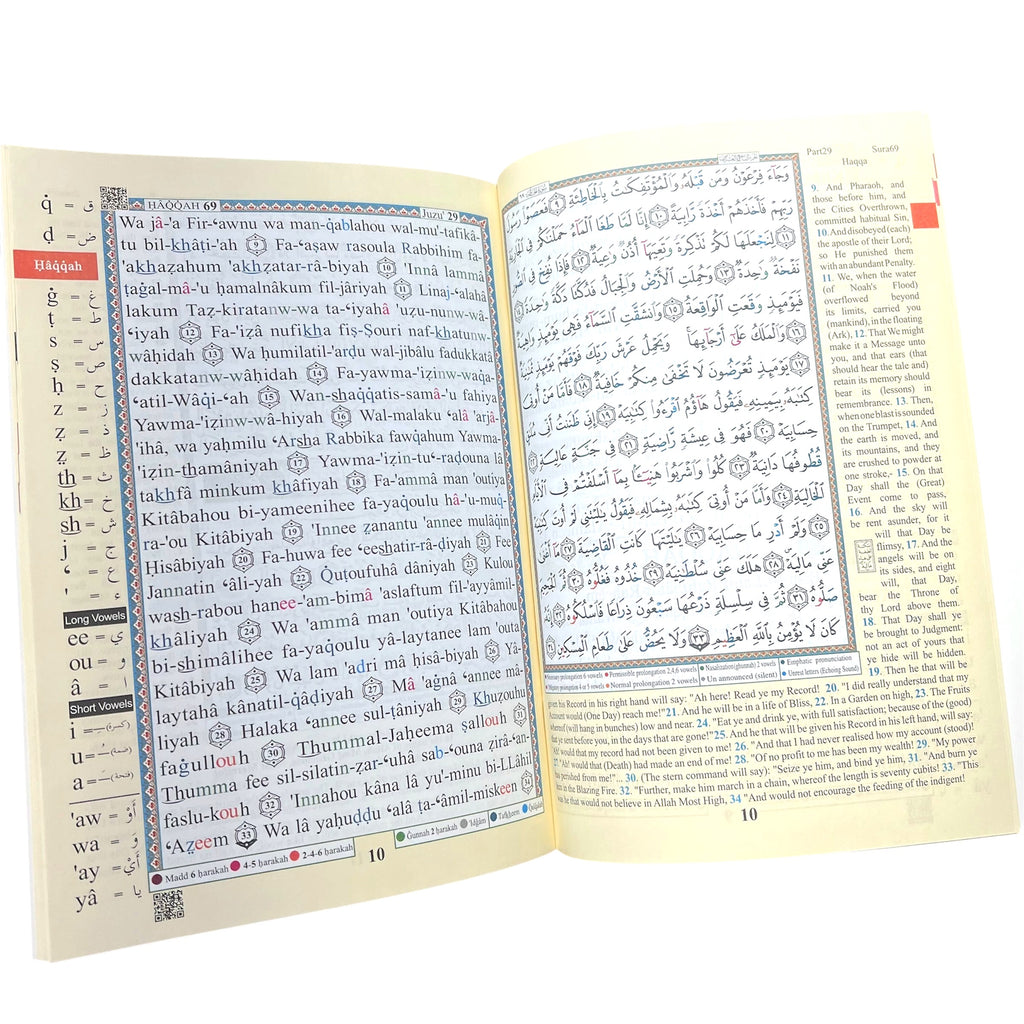 q̇ = ق
ḍ = ض
Ḥâq̇q̇ah
ġ = غ
ṭ = ط
s = س
ṣ = ص
ḥ = ح
z = ز
ẓ = ذ
ẓ = ظ
th = ث
kh = خ
sh = ش
j = ج
‘ = ع
' = ء
Long Vowels
ee = ي
ou = و
â =
Short Vowels
i = (كسرة)
u = (ضمة)
a = (فتحة)
'aw = أَوْ
wa = وَ
'ay = أَيْ
yâ = يا
ḤÂQ̇Q̇AH 69
Juzu' 29
Wa jâ-'a Fir-‘awnu wa man-q̇ablahou wal-mu'-tafikâ-
tu bil-khâṭi-'ah 9 Fa-‘aṣaw rasoula Rabbihim fa-
'akhaẓahum 'akhẓatar-râ-biyah 10 'Innâ lammâ
ṭaġal-mâ-'u ḥamalnâkum fil-jâriyah 11 Linaj-‘alahâ
lakum Taẓ-kiratanw-wa ta-‘iyahâ 'uẓu-nunw-wâ-
‘iyah 12 Fa-'iẓâ nufikha fiṣ-Ṣouri naf-khatunw-
wâḥidah 13 Wa ḥumilatil-'arḍu wal-jibâlu fadukkatâ
dakkatanw-wâḥidah 14 Fa-yawma-'iẓinw-waq̇a-
‘atil-Wâq̇i-‘ah 15 Wan-shaq̇q̇atis-samâ-'u fahiya
Yawma-'iẓinw-wâ-hiyah 16 Wal-malaku ‘alâ 'arjâ-
'ihâ, wa yaḥmilu ‘Arsha Rabbika fawq̇ahum Yawma-
'iẓin-thamâniyah 17 Yawma-'iẓin-tu‘-raḍouna lâ
takhfâ minkum khâfiyah 18 Fa-'ammâ man 'outiya
Kitâbahou bi-yameenihee fa-yaq̇oulu hâ-'u-muq̇-
ra-'ou Kitâbiyah 19 'Innee ẓanantu 'annee mulâq̇in
Ḥisâbiyah 20 Fa-huwa fee ‘eeshatir-râ-ḍiyah 21 Fee
Jannatin ‘âli-yah 22 Q̇uṭoufuhâ dâniyah 23 Kulou
wash-rabou hanee-'am-bimâ 'aslaftum fil-'ayyâmil-
khâliyah 24 Wa 'ammâ man 'outiya Kitâbahou
bi-shimâlihee fa-yaq̇oulu yâ-laytanee lam 'outa
Kitâbiyah 25 Wa lam 'adri mâ ḥisâ-biyah 26 Yâ-
laytahâ kânatil-q̇âḍiyah 27 Mâ 'aġnâ ‘annee mâ-
liyah 28 Halaka ‘annee sul-ṭâniyah 29 Khuẓouhu
faġullouh 30 Thummal-Jaḥeema ṣallouh 31
Thumma fee sil-silatin-ẓar-‘uhâ sab-‘ouna ẓirâ-‘an-
faslu-kouh 32 'Innahou kâna lâ yu'-minu bi-LLâhil
‘Aẓeem 33 Wa lâ yaḥuḍḍu ‘alâ ṭa-‘âmil-miskeen 34
Madd 6 ḥarakah 4-5 ḥarakah 2-4-6 ḥarakah Ġunnah 2 ḥarakah 'Idġâm Tafkheem Q̇alq̇alah
10
وَجَآءَ فِرْعَوْنُ وَمَن قَبْلَهُۥ وَٱلْمُؤْتَفِكَٰتُ بِٱلْخَاطِئَةِ ٩ فَعَصَوْا۟ رَسُولَ
رَبِّهِمْ فَأَخَذَهُمْ أَخْذَةً رَّابِيَةً ١٠ إِنَّا لَمَّا طَغَا ٱلْمَآءُ حَمَلْنَٰكُمْ فِى ٱلْجَارِيَةِ
١١ لِنَجْعَلَهَا لَكُمْ تَذْكِرَةً وَتَعِيَهَآ أُذُنٌ وَٰعِيَةٌ ١٢ فَإِذَا نُفِخَ فِى ٱلصُّورِ
نَفْخَةٌ وَٰحِدَةٌ ١٣ وَحُمِلَتِ ٱلْأَرْضُ وَٱلْجِبَالُ فَدُكَّتَا دَكَّةً وَٰحِدَةً ١٤
فَيَوْمَئِذٍ وَقَعَتِ ٱلْوَاقِعَةُ ١٥ وَٱنشَقَّتِ ٱلسَّمَآءُ فَهِىَ يَوْمَئِذٍ وَاهِيَةٌ
١٦ وَٱلْمَلَكُ عَلَىٰٓ أَرْجَآئِهَا وَيَحْمِلُ عَرْشَ رَبِّكَ فَوْقَهُمْ يَوْمَئِذٍ ثَمَٰنِيَةٌ
١٧ يَوْمَئِذٍ تُعْرَضُونَ لَا تَخْفَىٰ مِنكُمْ خَافِيَةٌ ١٨ فَأَمَّا مَنْ أُوتِىَ
كِتَٰبَهُۥ بِيَمِينِهِۦ فَيَقُولُ هَآؤُمُ ٱقْرَءُوا۟ كِتَٰبِيَهْ ١٩ إِنِّى ظَنَنتُ أَنِّى مُلَٰقٍ
حِسَابِيَهْ ٢٠ فَهُوَ فِى عِيشَةٍ رَّاضِيَةٍ ٢١ فِى جَنَّةٍ عَالِيَةٍ ٢٢
قُطُوفُهَا دَانِيَةٌ ٢٣ كُلُوا۟ وَٱشْرَبُوا۟ هَنِيٓـًٔۢا بِمَآ أَسْلَفْتُمْ فِى ٱلْأَيَّامِ
ٱلْخَالِيَةِ ٢٤ وَأَمَّا مَنْ أُوتِىَ كِتَٰبَهُۥ بِشِمَالِهِۦ فَيَقُولُ يَٰلَيْتَنِى لَمْ أُوتَ كِتَٰبِيَهْ
٢٥ وَلَمْ أَدْرِ مَا حِسَابِيَهْ ٢٦ يَٰلَيْتَهَا كَانَتِ ٱلْقَاضِيَةَ ٢٧ مَآ أَغْنَىٰ
عَنِّى مَالِيَهْ ٢٨ هَلَكَ عَنِّى سُلْطَٰنِيَهْ ٢٩ خُذُوهُ فَغُلُّوهُ ٣٠ ثُمَّ ٱلْجَحِيمَ
صَلُّوهُ ٣١ ثُمَّ فِى سِلْسِلَةٍ ذَرْعُهَا سَبْعُونَ ذِرَاعًا فَٱسْلُكُوهُ ٣٢ إِنَّهُۥ
كَانَ لَا يُؤْمِنُ بِٱللَّهِ ٱلْعَظِيمِ ٣٣ وَلَا يَحُضُّ عَلَىٰ طَعَامِ ٱلْمِسْكِينِ ٣٤
prolongation 6 vowels Permissible prolongation 2,4,6 vowels Nasalization (ghunnah) 2 vowels Emphatic pronunciation
prolongation 4 or 5 vowels Normal prolongation 2 vowels Un announced (silent) Unrest letters (Echoing Sound)
Part29 Sura69
Haqqa
9. And Pharaoh, and
those before him, and
the Cities Overthrown,
committed habitual Sin,
10. And disobeyed (each)
the apostle of their Lord;
so He punished them
with an abundant Penalty.
11. We, when the water
(of Noah's Flood)
overflowed beyond
its limits, carried you
(mankind), in the floating
(Ark), 12. That We might
make it a Message unto
you, and that ears (that
should hear the tale and)
retain its memory should
bear its (lessons) in
remembrance. 13. Then,
when one blast is sounded
on the Trumpet, 14. And
the earth is moved, and
its mountains, and they
are crushed to powder at
one stroke,- 15. On that
Day shall the (Great)
Event come to pass,
16. And the sky will
be rent asunder, for it
will that Day be
flimsy, 17. And the
angels will be on
its sides, and eight
will, that Day,
bear the Throne of
thy Lord above them.
18. That Day shall ye
be brought to Judgment:
not an act of yours that
ye hide will be hidden.
19. Then he that will be
given his Record in his right hand will say: "Ah here! Read ye my Record! 20. "I did really understand that my
Account would (One Day) reach me!" 21. And he will be in a life of Bliss, 22. In a Garden on high, 23. The Fruits
whereof (will hang in bunches) low and near. 24. "Eat ye and drink ye, with full satisfaction; because of the (good)
that ye sent before you, in the days that are gone!" 25. And he that will be given his Record in his left hand, will say:
"Ah! would that my record had not been given to me! 26. "And that I had never realised how my account (stood)!
27. "Ah! would that (Death) had made an end of me! 28. "Of no profit to me has been my wealth! 29. "My power
has perished from me!"... 30. (The stern command will say): "Seize ye him, and bind ye him, 31. "And burn ye
him in the Blazing Fire. 32. "Further, make him march in a chain, whereof the length is seventy cubits! 33. "This
was he that would not believe in Allah Most High, 34 "And would not encourage the feeding of the indigent!
10